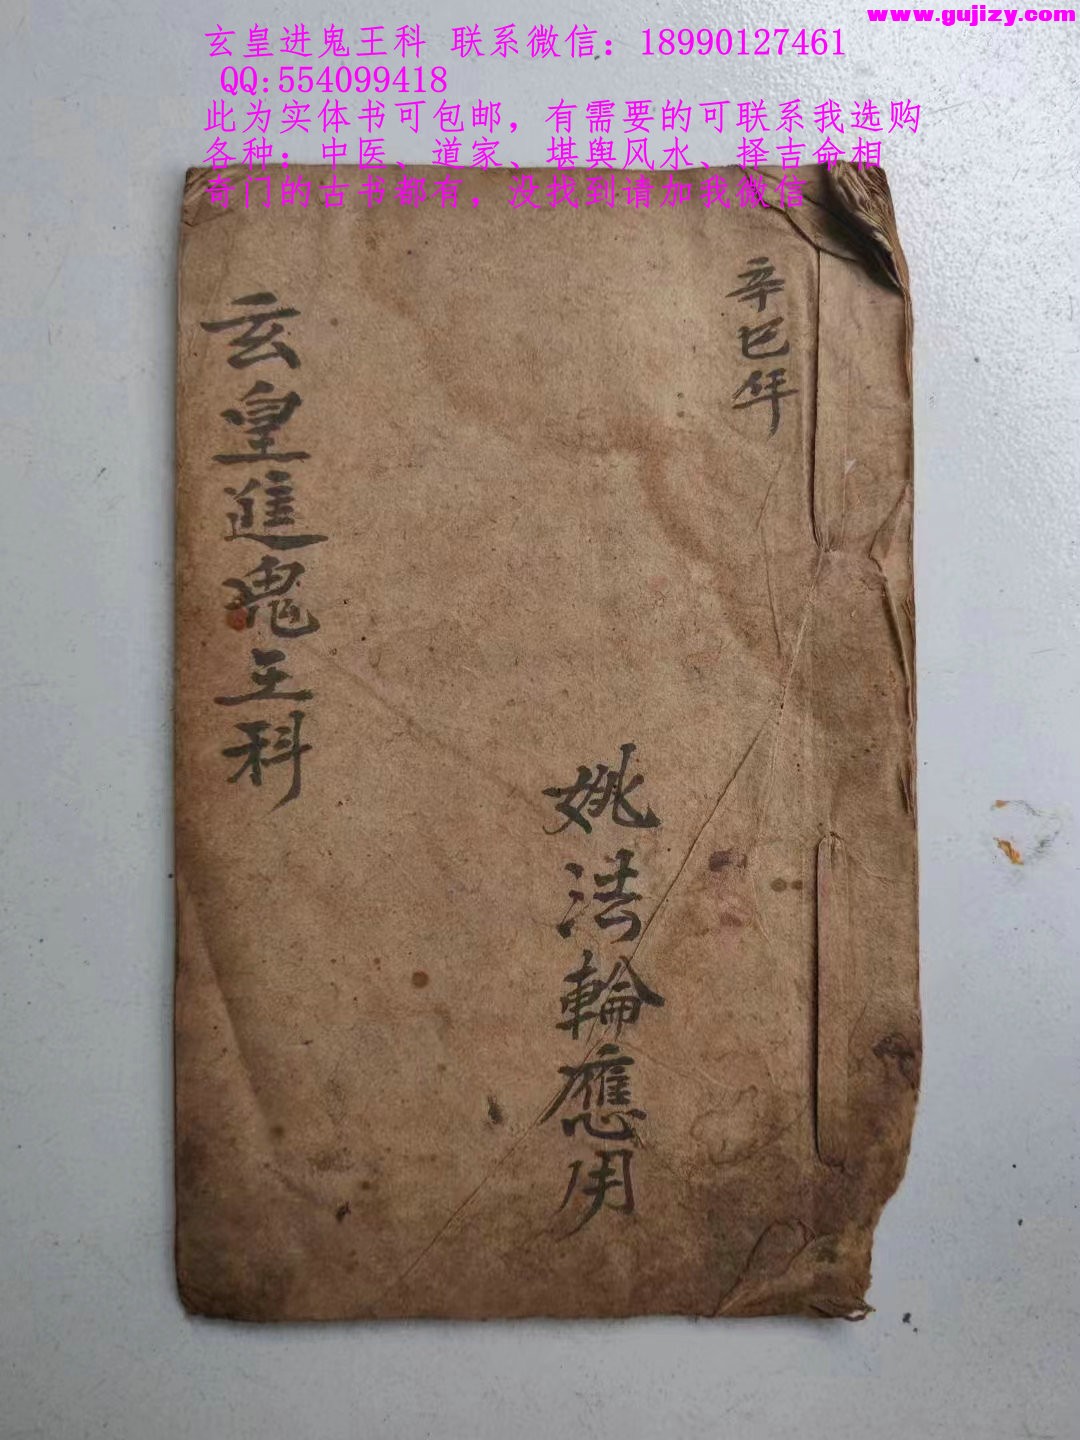 www.gujizy.com
玄皇进鬼王科 联系微信：18990127461
QQ:554099418
此为实体书可包邮，有需要的可联系我选购
各种：中医、道家、堪舆风水、择吉命相
奇门的古书都有，没找到请加我微信
辛巳年
姚法輪應用
玄皇進鬼王科